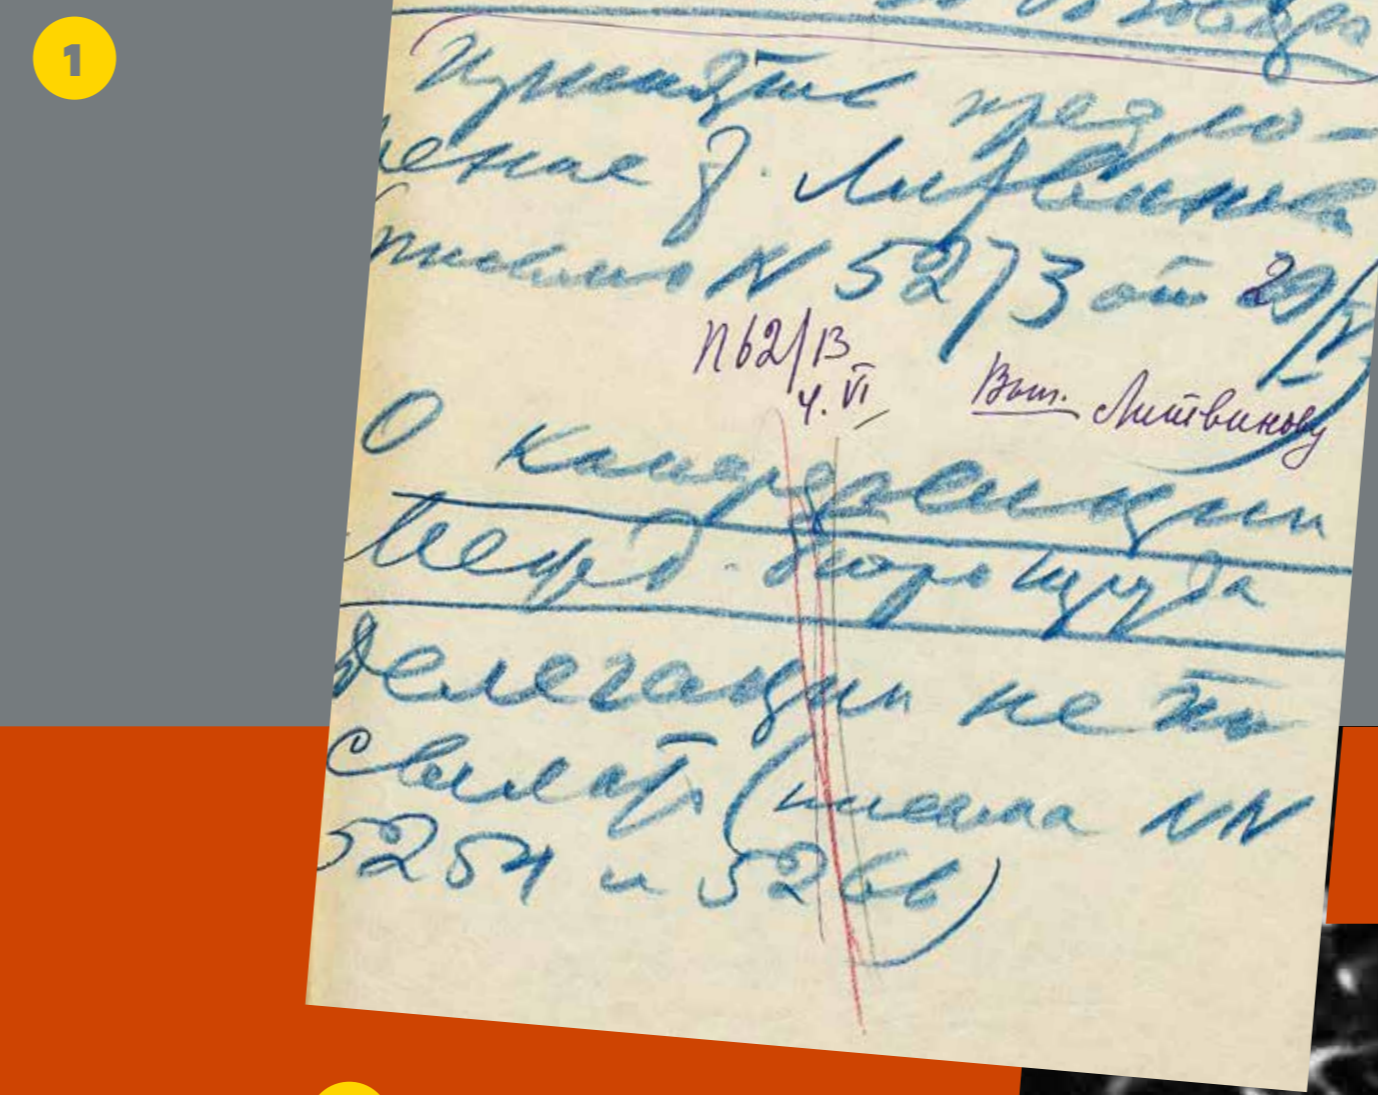 1
Принять предло-
жение т. Литвинова
(письмо N 5273 от 29/V)
П62/13
4.VI
Вып. Литвинову
О конференции
Межд. бюро труда
Делегации не по-
сылать (письма NN
5254 и 5266)